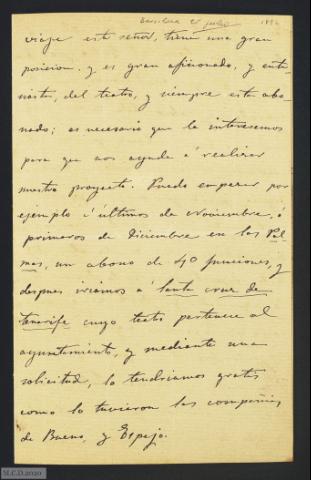 Barcelona 25 julio 1892
viaje este señor, tiene una gran
posicion, y es gran aficionado, y entu-
siasta, del teatro, y siempre esta abo-
nado; es necesario que le interesemos
para que nos ayude á realizar
nuestro proyecto. Puedo empezar por
ejemplo á últimos de Noviembre, ó
primeros de Diciembre en las Pal-
mas, un abono de 40 funciones, y
despues iriamos á Santa Cruz de
Tenerife cuyo teatro pertenece al
ayuntamiento, y mediante una
solicitud, lo tendriamos gratis
como lo tuvieron las compañias
de Bueno, y Espejo.
M.C.D. 2020